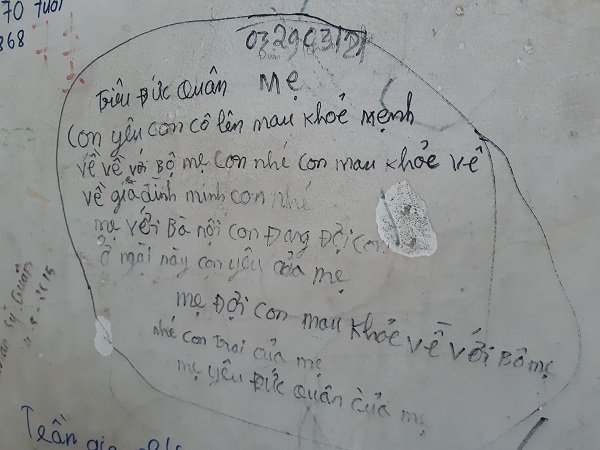 70 tuổi
868
Mẹ
Triệu Đức Quân
Con yêu con cô lên mau khỏe mệnh
về về với bộ mẹ con nhé con mau khỏe về
về giã đình mình con nhé
mẹ với Bà nội con Đang Đợi con
ở ngoài này con yêu của mẹ
mẹ Đợi con mau khỏe về với Bố mẹ
nhé con trai của mẹ
mẹ yêu Đức Quân của mẹ
Trần gia